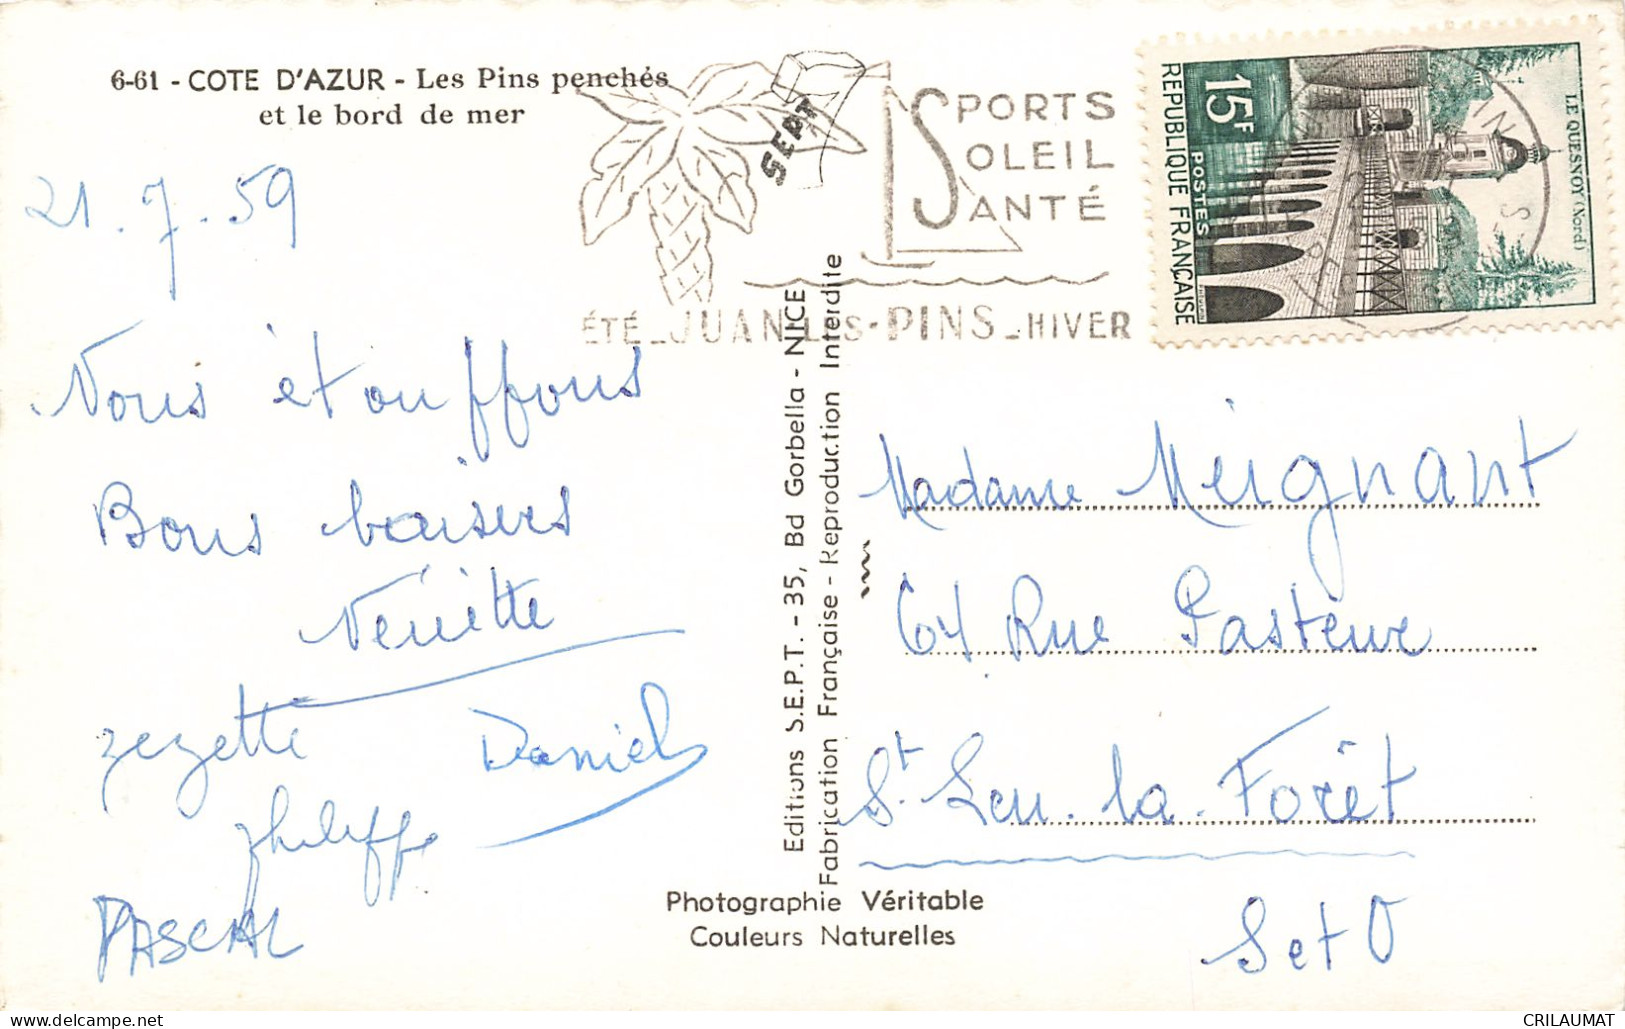 6-61 - COTE D'AZUR - Les Pins penchés
et le bord de mer
SEPT
SPORTS
SOLEIL
SANTÉ
ÉTÉ - JUAN-LES-PINS - HIVER
15F
POSTES
REPUBLIQUE FRANÇAISE
LE QUESNOY (Nord)
21.7.59
Nous étouffons
Bons baisers
zezette
Daniel
philippe
PASCAL
Editions S.E.P.T. - 35, Bd Gorbella - NICE
Fabrication Française - Reproduction Interdite
Madame Meignant
64 Rue Pasteur
St. Leu. la. Forêt
S et O
Photographie Véritable
Couleurs Naturelles
delcampe.net
CRILAUMAT